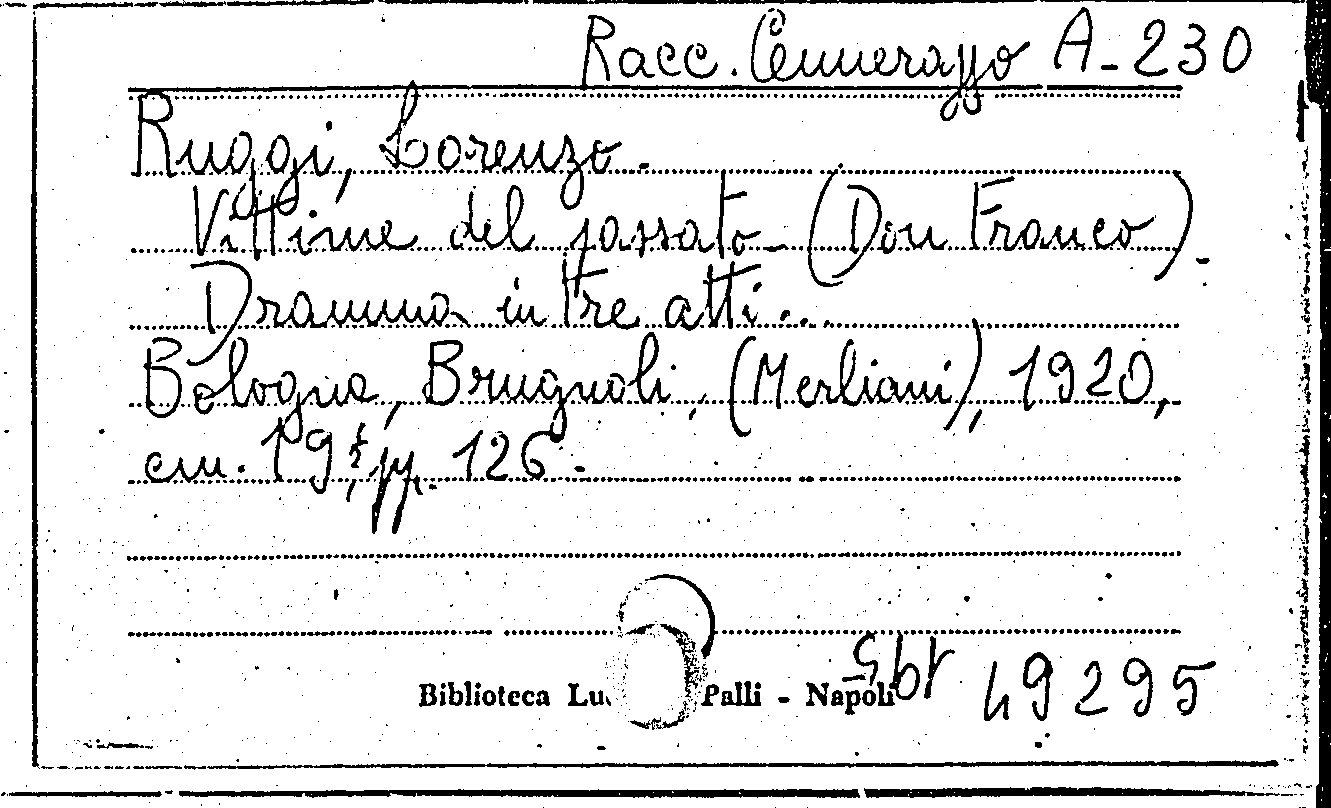 Racc. Cennerazzo A-230
Ruggi, Lorenzo.
Vittime del passato - (Don Franco).
Dramma in tre atti...
Bologna, Brugnoli, (Merliani), 1920,
cm. 19½, pp. 126.
Biblioteca Palli - Napoli
49295